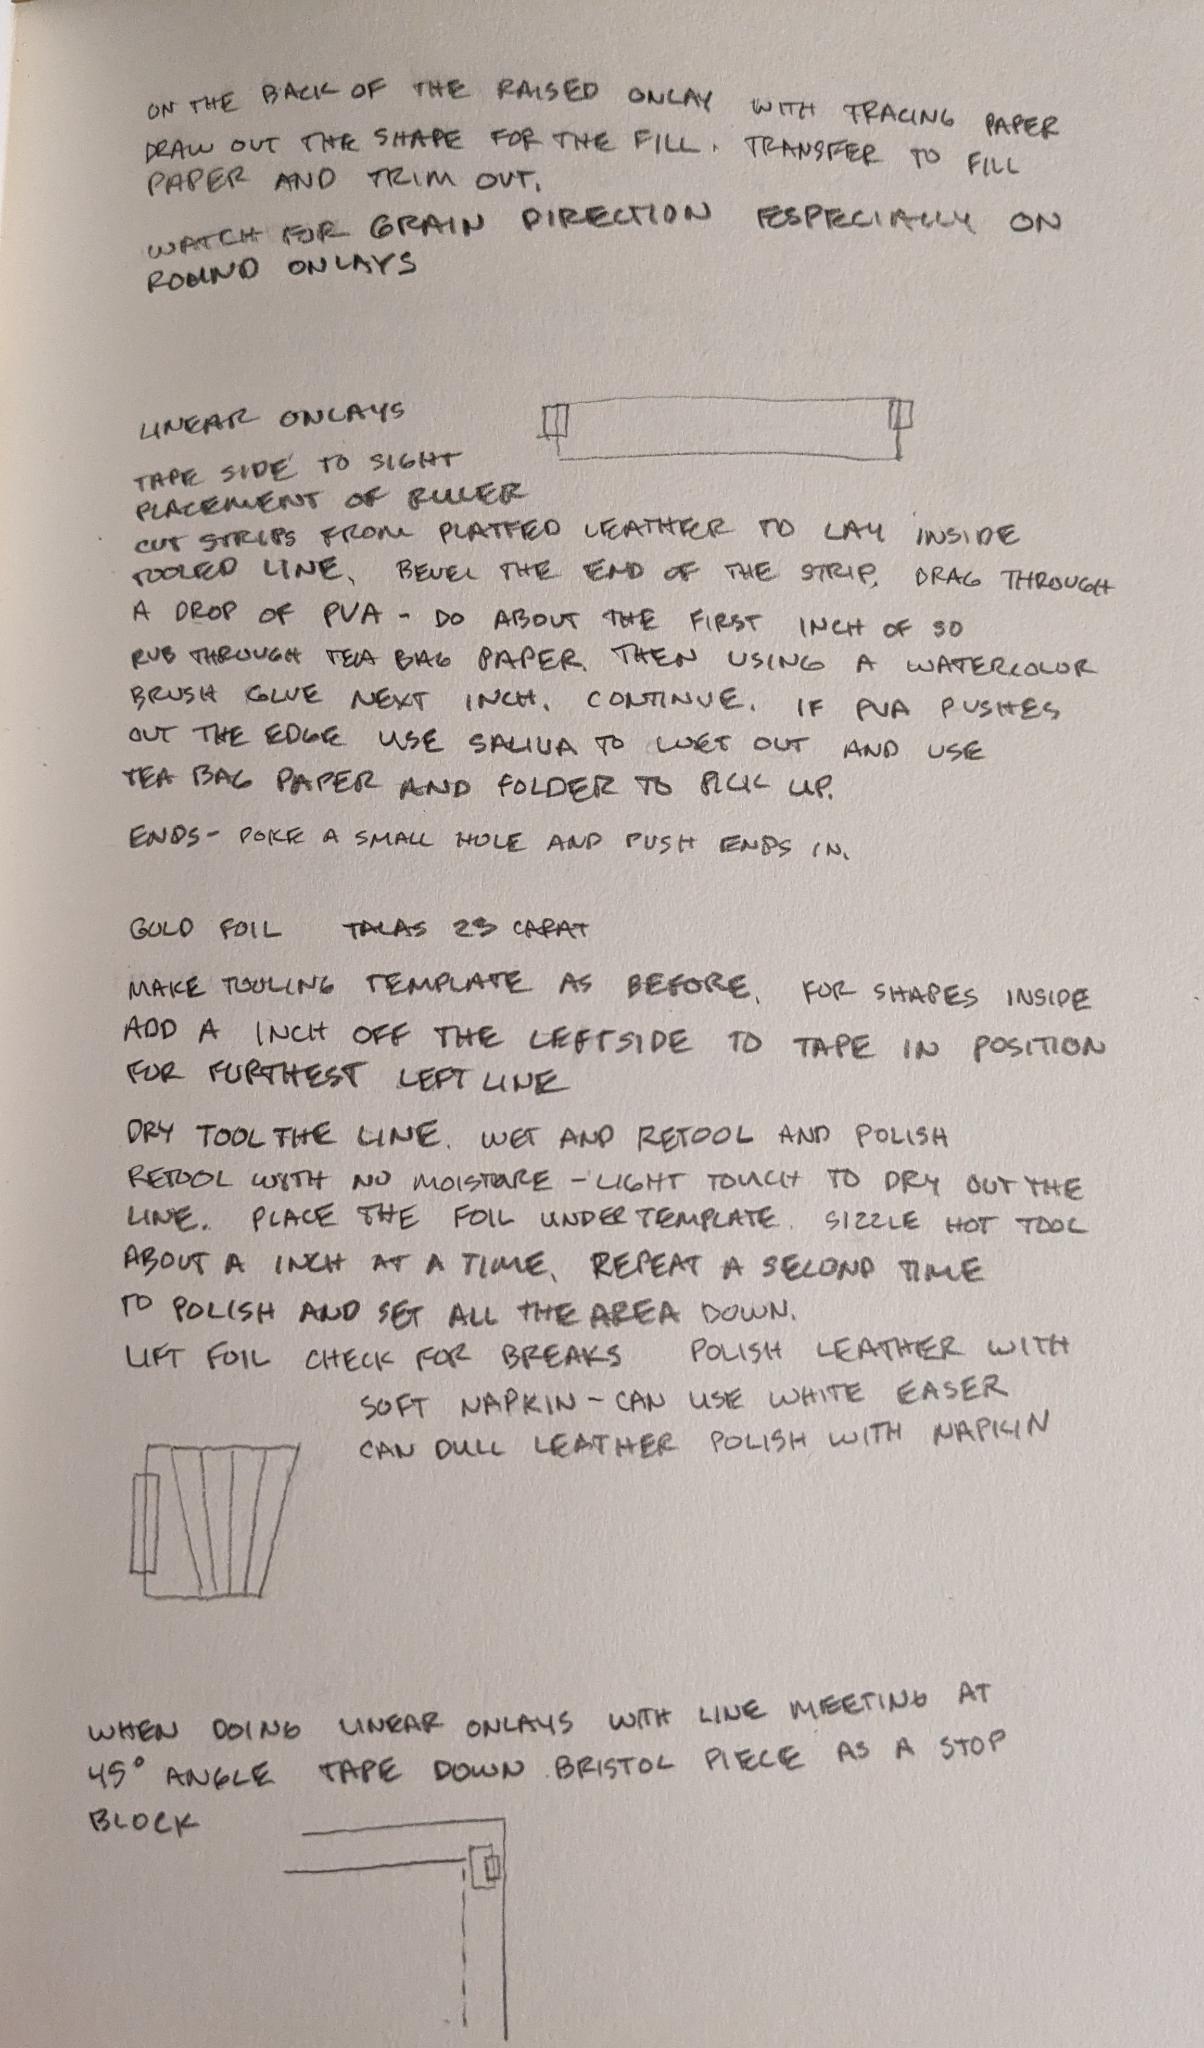 ON THE BACK OF THE RAISED ONLAY WITH TRACING PAPER
DRAW OUT THE SHAPE FOR THE FILL. TRANSFER TO FILL
PAPER AND TRIM OUT.
WATCH FOR GRAIN DIRECTION ESPECIALLY ON
ROUND ONLAYS
LINEAR ONLAYS
TAPE SIDE TO SIGHT
PLACEMENT OF RULER
CUT STRIPS FROM PLATTED LEATHER TO LAY INSIDE
TOOLED LINE. BEVEL THE END OF THE STRIP. DRAG THROUGH
A DROP OF PVA - DO ABOUT THE FIRST INCH OF SO
RUB THROUGH TEA BAG PAPER. THEN USING A WATERCOLOR
BRUSH GLUE NEXT INCH. CONTINUE. IF PVA PUSHES
OUT THE EDGE USE SALIVA TO WET OUT AND USE
TEA BAG PAPER AND FOLDER TO PICK UP.
ENDS - POKE A SMALL HOLE AND PUSH ENDS IN.
GOLD FOIL TALAS 23 CARAT
MAKE TOOLING TEMPLATE AS BEFORE. FOR SHAPES INSIDE
ADD A INCH OFF THE LEFTSIDE TO TAPE IN POSITION
FOR FURTHEST LEFT LINE
DRY TOOL THE LINE. WET AND RETOOL AND POLISH
RETOOL WITH NO MOISTURE - LIGHT TOUCH TO DRY OUT THE
LINE. PLACE THE FOIL UNDER TEMPLATE. SIZZLE HOT TOOL
ABOUT A INCH AT A TIME. REPEAT A SECOND TIME
TO POLISH AND SET ALL THE AREA DOWN.
LIFT FOIL CHECK FOR BREAKS POLISH LEATHER WITH
SOFT NAPKIN - CAN USE WHITE EASER
CAN DULL LEATHER POLISH WITH NAPKIN
WHEN DOING LINEAR ONLAYS WITH LINE MEETING AT
45° ANGLE TAPE DOWN BRISTOL PIECE AS A STOP
BLOCK